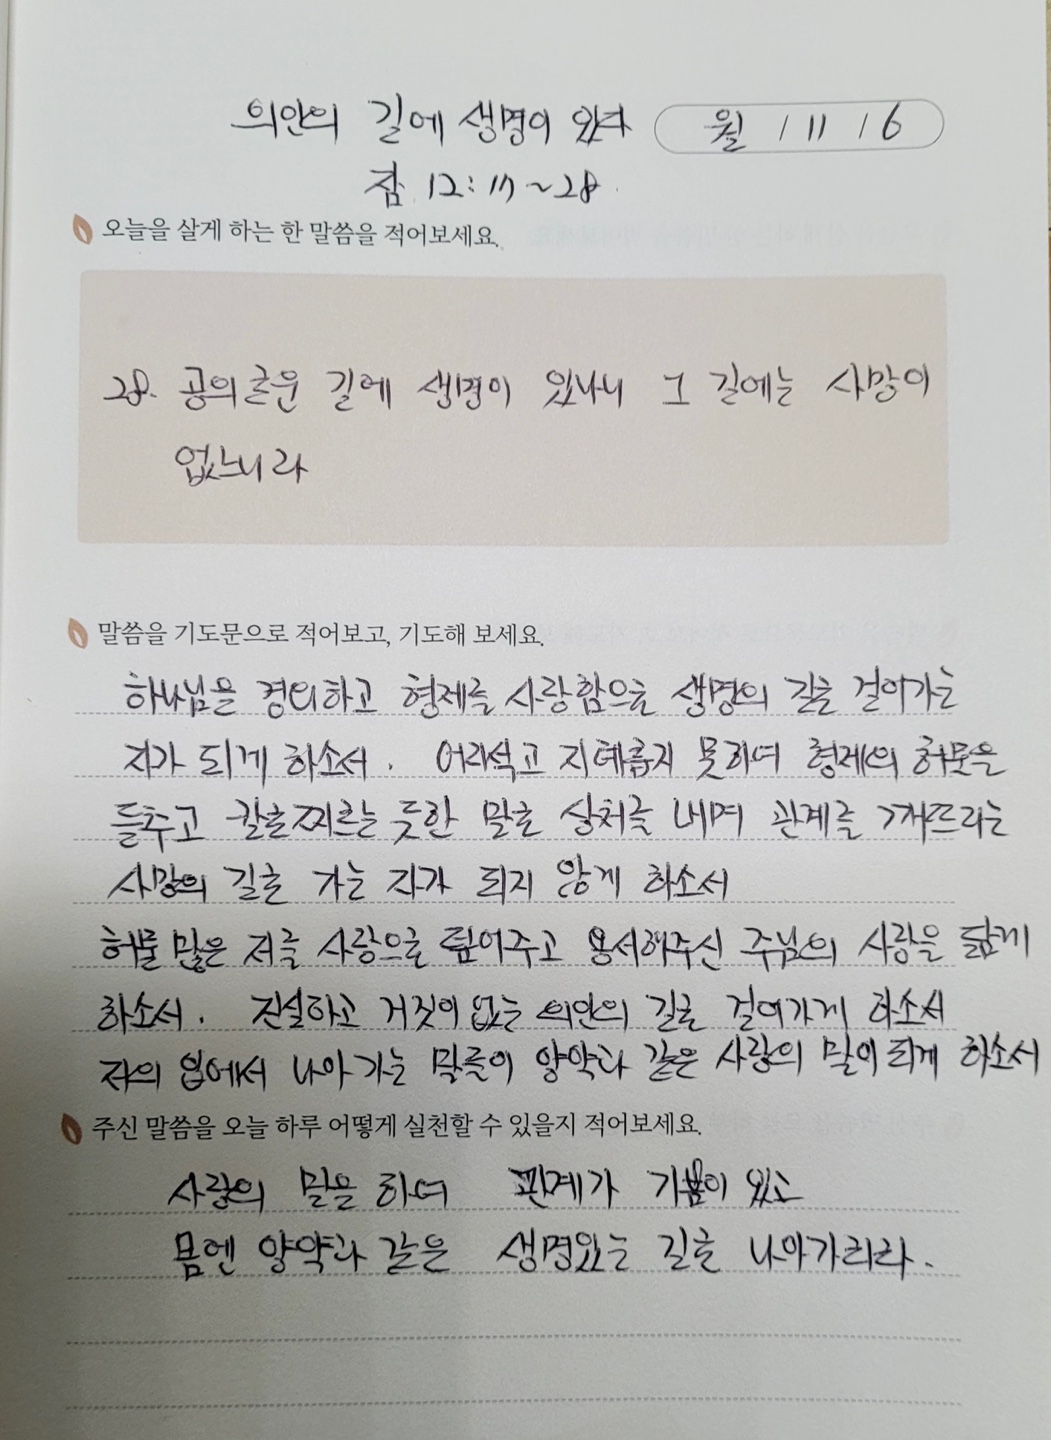 의안의 길에 생명이 있다 월 / 11 / 6
잠 12:17~28.
오늘을 살게 하는 한 말씀을 적어보세요.
28. 공의로운 길에 생명이 있나니 그 길에는 사망이
없느니라
말씀을 기도문으로 적어보고, 기도해 보세요.
하나님을 경외하고 형제를 사랑함으로 생명의 길을 걸어가는
자가 되게 하소서. 어리석고 지혜롭지 못하여 형제의 허물을
들추고 칼로 찌르는 듯한 말로 상처를 내며 관계를 깨뜨리는
사망의 길을 가는 자가 되지 않게 하소서
허물 많은 저를 사랑으로 덮어주고 용서해주신 주님의 사랑을 닮게
하소서. 진실하고 거짓이 없는 의안의 길을 걸어가게 하소서
저의 입에서 나아가는 말들이 양약과 같은 사랑의 말이 되게 하소서
주신 말씀을 오늘 하루 어떻게 실천할 수 있을지 적어보세요.
사랑의 말을 하여 관계가 기쁨이 있고
몸엔 양약과 같은 생명있는 길로 나아가리라.